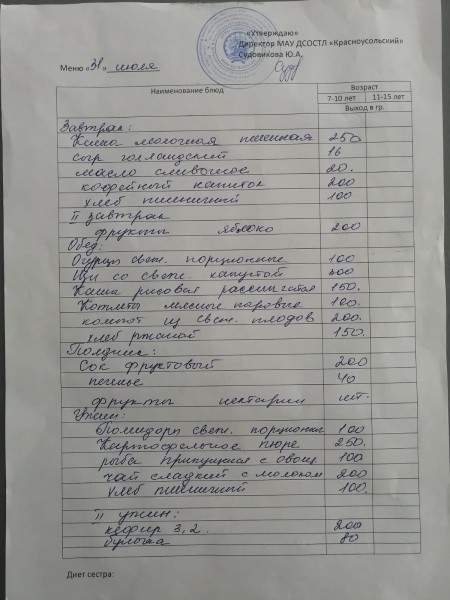 «Утверждаю»
Директор МАУ ДСОСТЛ «Красноусольский»
Судовикова Ю.А.
Меню «31» июля
Наименование блюд Возраст
7-10 лет 11-15 лет
Выход в гр.
Завтрак:
Каша молочная пшенная 250
сыр голландский 16
масло сливочное 20.
кофейный напиток 200
хлеб пшеничный 100
II завтрак
фрукты яблоко 200
Обед:
Огурцы свеж. порционные 100
Щи со свеж. капустой
Каша рисовая рассыпчатая 150.
Котлеты мясные паровые 100.
компот из свеж. плодов 200.
хлеб ржаной 150.
Полдник:
Сок фруктовый 200
печенье 40
фрукты нектарин шт.
Ужин:
Помидоры свеж. порционные 100
Картофельное пюре 250.
рыба припущенная с овощ. 100
чай сладкий с молоком 200
хлеб пшеничный 100.
II ужин:
кефир 3,2. 200
булочка 80
Диет сестра: